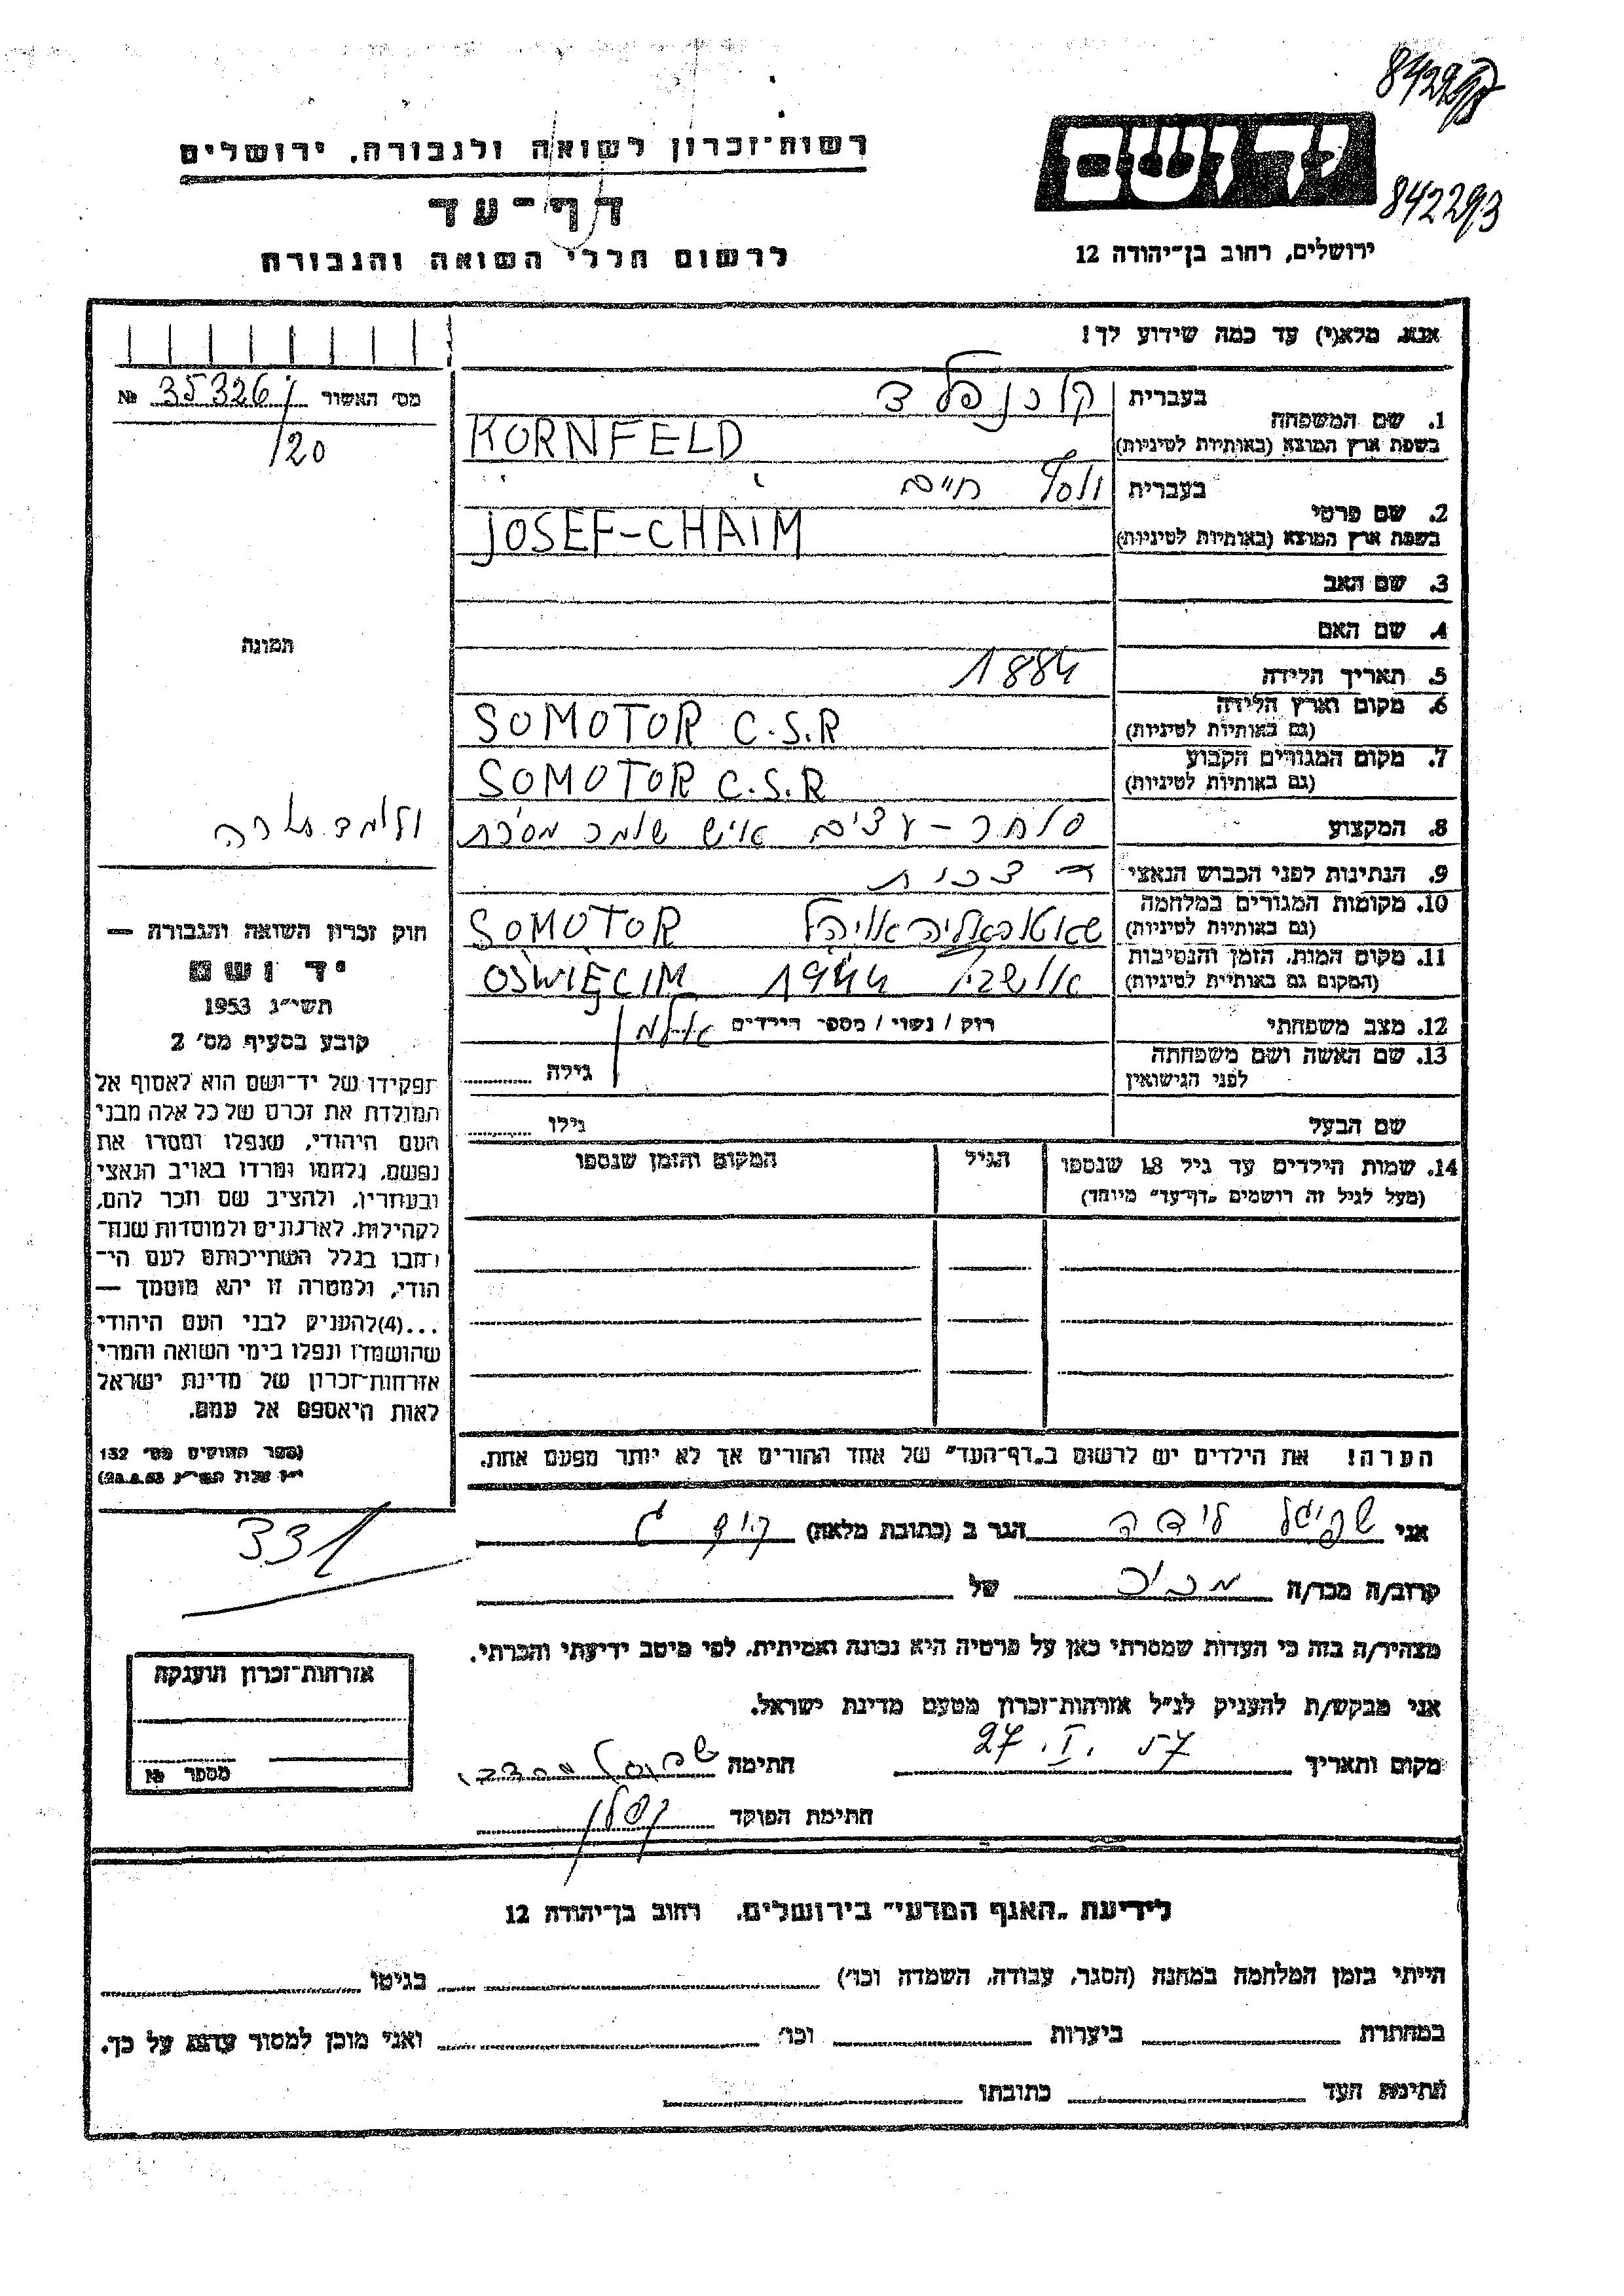 84229
842293
רשות־זכרון לשואה ולגבורה, ירושלים
דף־עד
לרשום חללי השואה והגבורה
יד ושם
ירושלים, רחוב בן־יהודה 12
אנא, מלא(י) עד כמה שידוע לך!
מס׳ האשור 35326 №
/20
1. שם המשפחה
בעברית קורנפלד
בשפת ארץ המוצא (באותיות לטיניות) KORNFELD
2. שם פרטי
בעברית יוסף חיים
בשפת ארץ המוצא (באותיות לטיניות) JOSEF-CHAIM
3. שם האב
4. שם האם
תמונה
5. תאריך הלידה 1884
6. מקום וארץ הלידה
(גם באותיות לטיניות) SOMOTOR C.S.R
7. מקום המגורים הקבוע
(גם באותיות לטיניות) SOMOTOR C.S.R
8. המקצוע סוחר – עצים איש שומר מסורת
ולומד תורה
9. הנתינות לפני הכבוש הנאצי
10. מקומות המגורים במלחמה
(גם באותיות לטיניות) SOMOTOR
11. מקום המות, הזמן והנסיבות
(המקום גם באותיות לטיניות) אושביץ 1944 OŚWIĘCIM
12. מצב משפחתי רווק / נשוי / מספר הילדים אלמן
13. שם האשה ושם משפחתה
לפני הנישואין
גילה
שם הבעל גילו
14. שמות הילדים עד גיל 18 שנספו
(מעל לגיל זה רושמים „דף־עד״ מיוחד)
הגיל
המקום והזמן שנספו
הערה! את הילדים יש לרשום ב„דף־העד״ של אחד ההורים אך לא יותר מפעם אחת.
חוק זכרון השואה והגבורה —
יד ושם
תשי״ג 1953
קובע בסעיף מס׳ 2
תפקידו של יד־ושם הוא לאסוף אל
המולדת את זכרם של כל אלה מבני
העם היהודי, שנפלו ומסרו את
נפשם, נלחמו ומרדו באויב הנאצי
ובעוזריו, ולהציב שם וזכר להם,
לקהילות, לארגונים ולמוסדות שנח־
רבו בגלל השתייכותם לעם הי־
הודי, ולמטרה זו יהא מוסמך —
...(4)להעניק לבני העם היהודי
שהושמדו ונפלו בימי השואה והמרי
אזרחות־זכרון של מדינת ישראל
לאות היאספם אל עמם.
(ספר החוקים מס׳ 132
י״ז אלול תשי״ג 28.8.53)
331
אני שפיגל לידה הגר ב (כתובת מלאה)
קרוב/ה מכר/ה מכיר של
מצהיר/ה בזה כי העדות שמסרתי כאן על פרטיה היא נכונה ואמיתית, לפי מיטב ידיעתי והכרתי.
אני מבקש/ת להעניק לנ״ל אזרחות־זכרון מטעם מדינת ישראל.
מקום ותאריך 27. I. 57 חתימה
חתימת הפוקד
אזרחות־זכרון הוענקה
מספר №
לידיעת „האגף המדעי״ בירושלים, רחוב בן־יהודה 12
הייתי בזמן המלחמה במחנה (הסגר, עבודה, השמדה וכו׳) בגיטו
במחתרת ביערות וכו׳ ואני מוכן למסור עדות על כך.
חתימת העד כתובתו